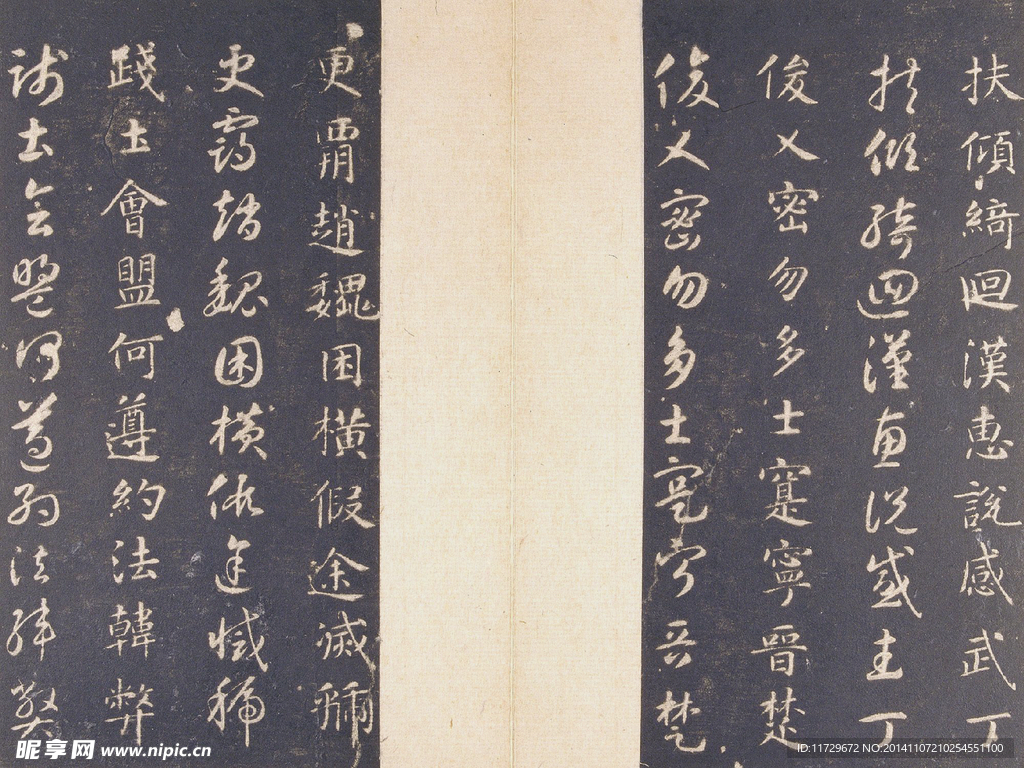 扶傾綺迴漢惠説感武丁
扶傾綺迴漢惠説感武丁
俊乂密勿多士寔寧晉楚
俊乂密勿多士寔寧晉楚
更霸趙魏困橫假途滅虢
更霸趙魏困橫假途滅虢
踐土會盟何遵約法韓弊
踐土會盟何遵約法韓弊
昵享网 www.nipic.cn
ID:11729672 NO:20141107210254551100